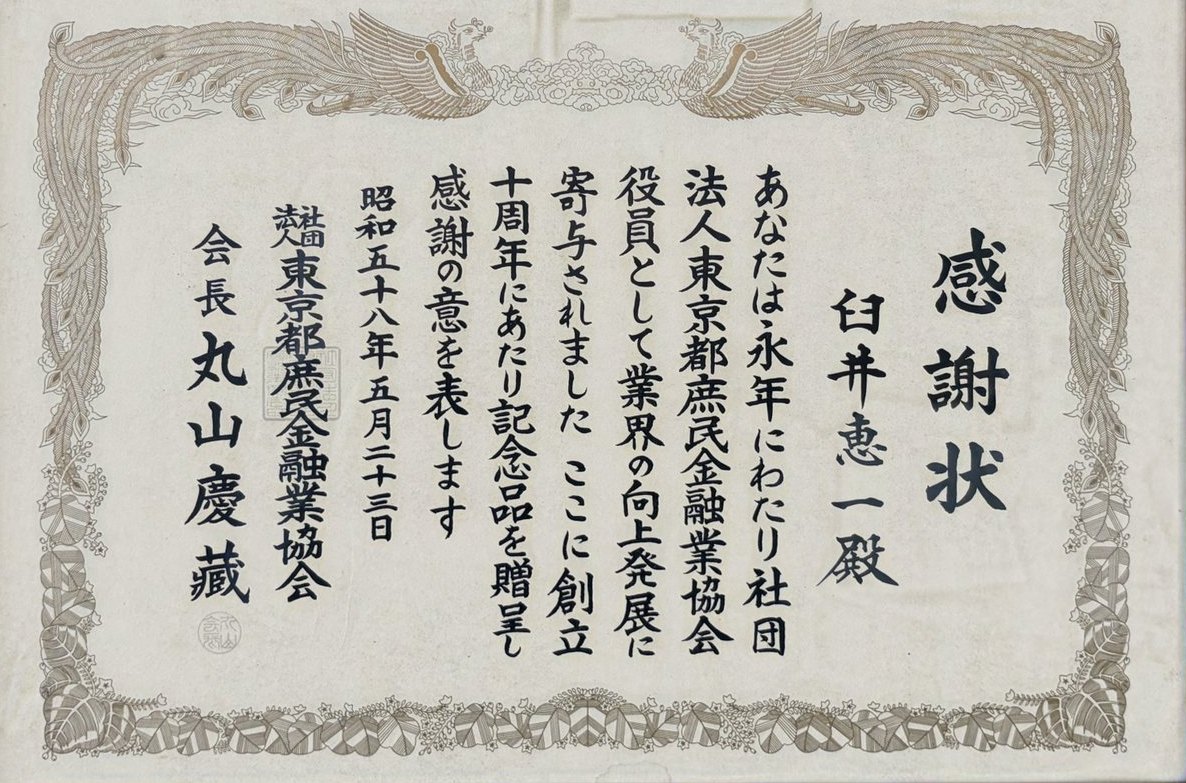 感謝状
臼井恵一殿
あなたは永年にわたり社団
法人東京都庶民金融業協会
役員として業界の向上発展に
寄与されました ここに創立
十周年にあたり記念品を贈呈し
感謝の意を表します
昭和五十八年五月二十三日
社団法人東京都庶民金融業協会
会長丸山慶蔵